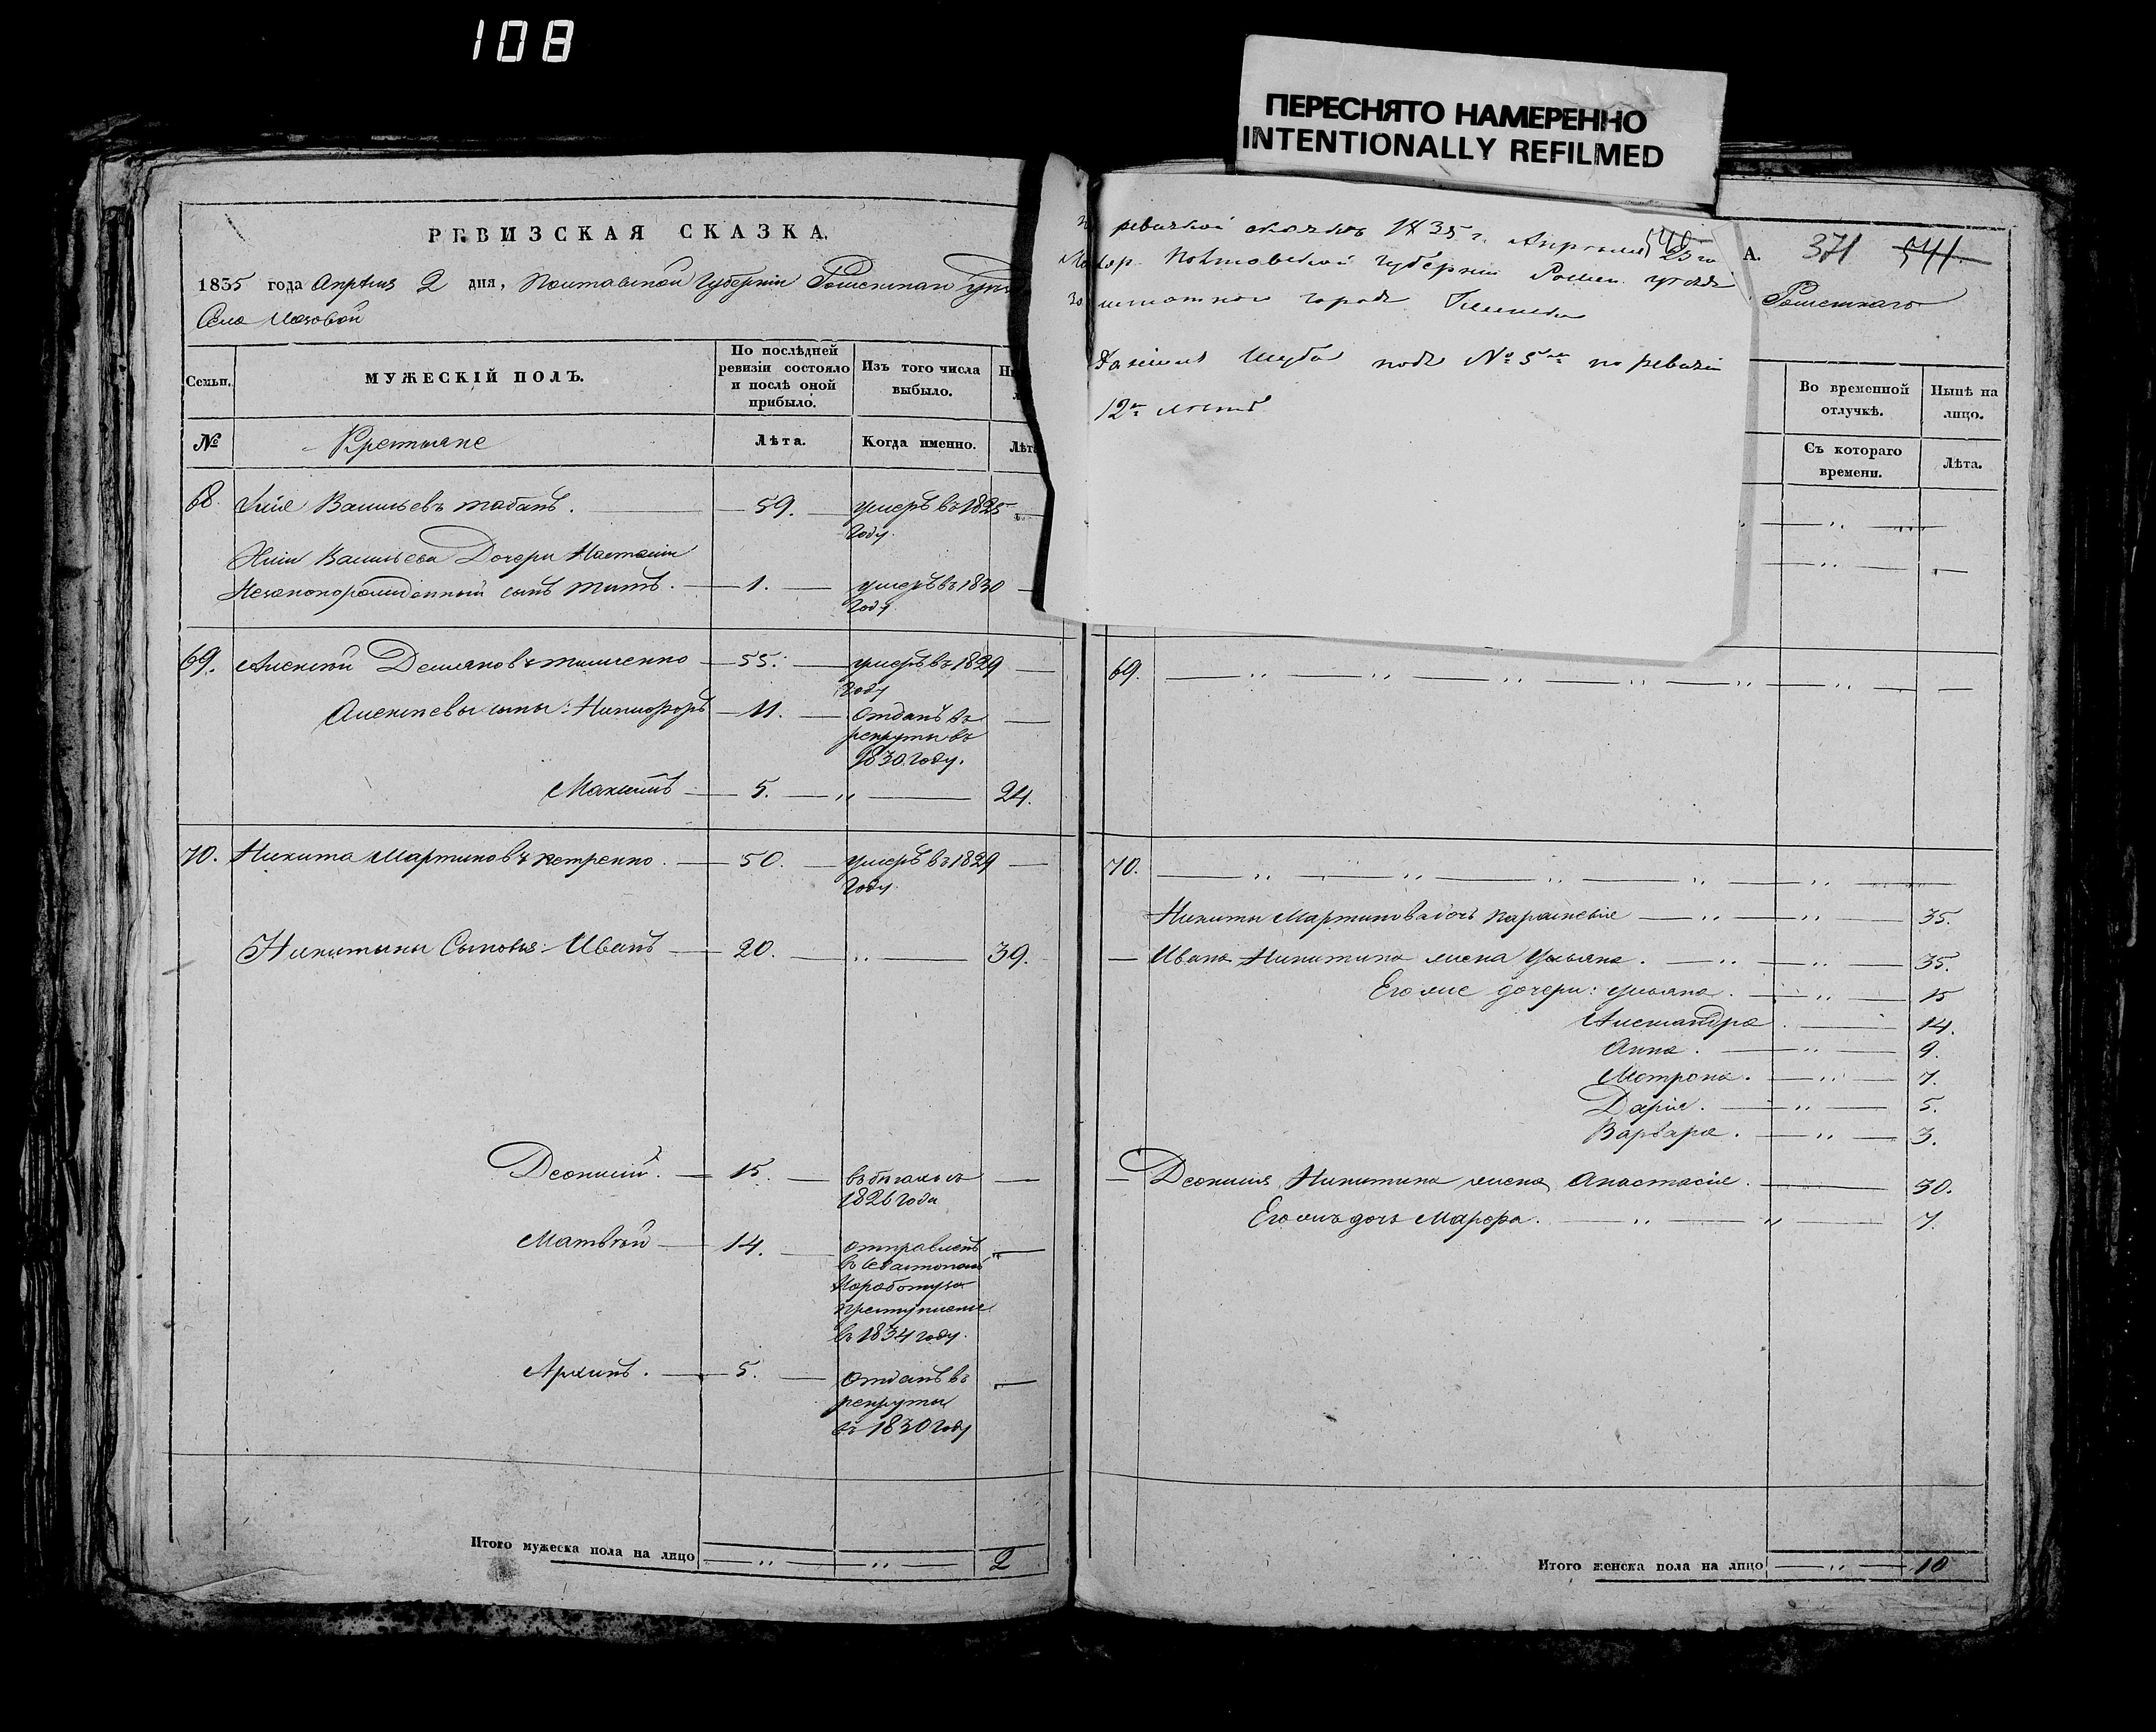 108
ПЕРЕСНЯТО НАМЕРЕННО
INTENTIONALLY REFILMED
РЕВИЗСКАЯ СКАЗКА.
1835 года Апрѣля 2 дня, Полтавской Губерніи Роменскаго
Села
Семьи.
МУЖЕСКІЙ ПОЛЪ.
По послѣдней ревизіи состояло и послѣ оной прибыло.
Изъ того числа выбыло.
№
Крестьяне
Лѣта.
Когда именно.
Лѣта
68. Васильевъ 59. умеръ въ 1825
году.
Васильева Дочери Настасіи
Незаконорожденный сынъ Титъ. 1. умеръ въ 1830
году.
69. Алексѣй Демяновъ 55. умеръ въ 1829
году
Алексѣевы сыны: Никифоръ 11. отданъ въ
рекруты въ
1830 году.
Максимъ 5. " 24.
70. Никита Мартиновъ Петренко. 50. умеръ въ 1829
году.
Никитины Сыновья: Иванъ 20. " 39.
Деонисій. 15. въ бѣгахъ съ
1826 года
Матвѣй 14. отправленъ
въ Севастополь
на работу за
преступленіе
въ 1834 году.
Архипъ. 5. отданъ въ
рекруты
въ 1830 году
Итого мужеска пола на лицо " " 2
ревизкой 1835 г. Апрѣля 25 го
Полтавской Губерніи Ромен. уезда
города
Шуба подъ № 5 по ревизіи
12
А. 371
Роменскаго
Во временной отлучкѣ.
Нынѣ на лицо.
Съ котораго времени.
Лѣта.
69.
70.
Никиты Мартинова дочь Параскевія " " 35.
Ивана Никитина жена Ульяна. " " 35.
Его же дочери: Ульяна. " 15
Александра. 14.
Анна. " 9.
Мотрона. " 7.
Дарія. " 5.
Варвара. " 3.
Деонисія Никитина жена Анастасія. 30.
Его жъ дочь Марфа. " " 7.
Итого женска пола на лицо " 10